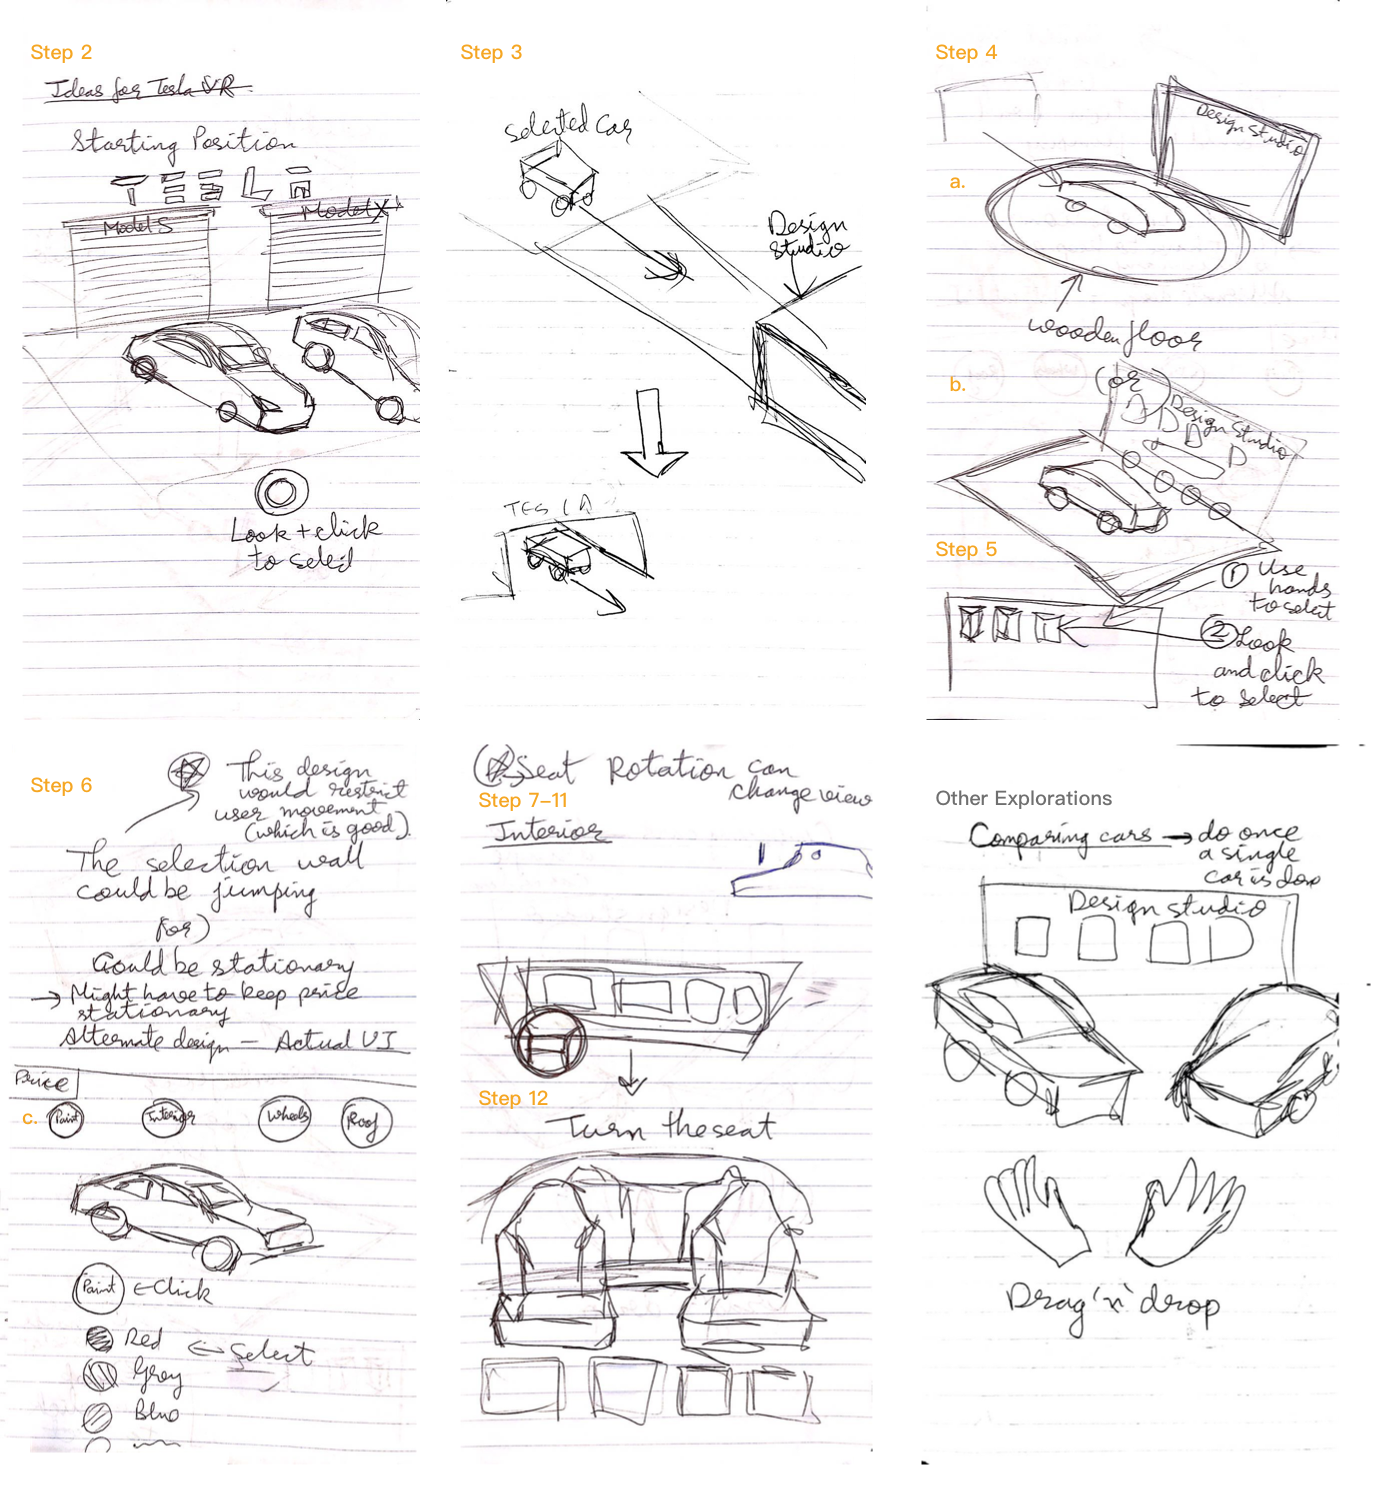 Step 2
Ideas for Tesla VR
Starting Position
TESLA
Model S
Model X
Look + click
to select
Step 3
selected car
Design
Studio
TESLA
Step 4
Design Studio
a.
wooden floor
b.
(or)
Design Studio
Step 5
① Use
hands
to select
② Look
and click
to select
Step 6
This design
would restrict
user movement
(which is good).
The selection wall
could be jumping
(or)
Could be stationary
→ Might have to keep price
stationary
Alternate design — Actual UI
Price
c.
Paint
Interior
Wheels
Roof
Paint ← Click
Red ← Select
Grey
Blue
Seat Rotation can
change view
Step 7–11
Interior
Step 12
Turn the seat
Other Explorations
Comparing cars → do once
a single
car is done
Design studio
Drag 'n' drop